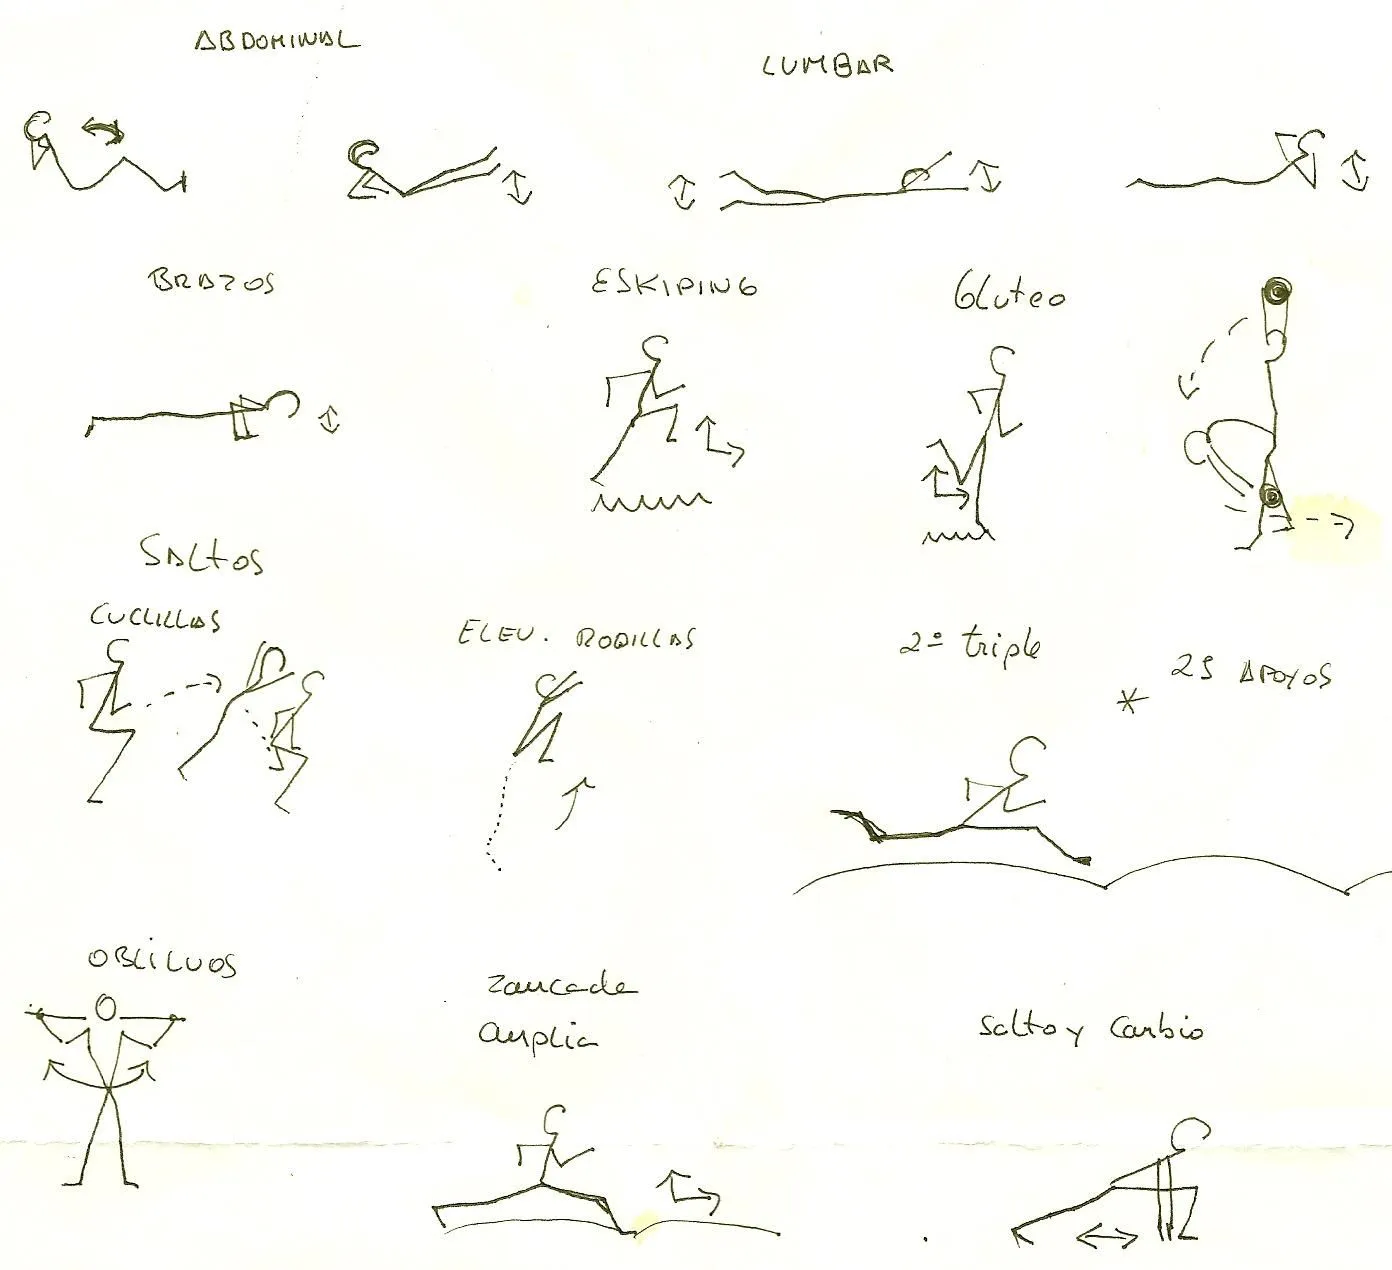 ABDOMINAL
LUMBAR
BRAZOS
ESKIPING
Gluteo
SALtOS
CUCLILLAS
ELEV. RODILLAS
2º triple
* 25 APOYOS
OBLICUOS
Zancada
amplia
Salto y Cambio